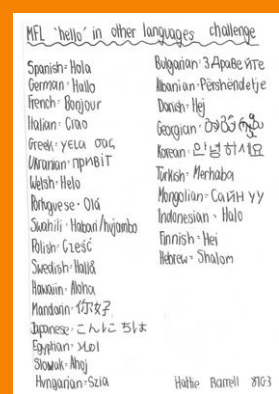 MFL 'hello' in other languages challenge
Spanish = Hola
German = Hallo
French = Bonjour
Italian = Ciao
Greek = γεια σας
Ukranian = привіт
Welsh = Helo
Portuguese = Olá
Swahili = Habari/hujambo
Polish = Cześć
Swedish = Hallå
Hawaiin = Aloha
Mandarin =
Japanese = こんにちは
Egyptian =
Slovak = Ahoj
Hungarian = Szia
Bulgarian = Здравейте
Albanian = Përshëndetje
Danish = Hej
Georgian =
Korean = 안녕하세요
Turkish = Merhaba
Mongolian = Сайн уу
Indonesian = Halo
Finnish = Hei
Hebrew = Shalom
Hattie